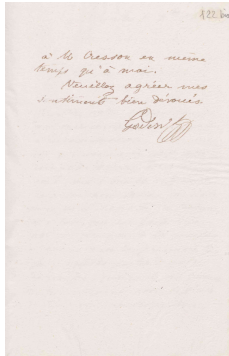 122 bis
à M Cresson en même
temps qu'à moi.
Veuillez agréer mes
sentiments bien dévoués
Godin